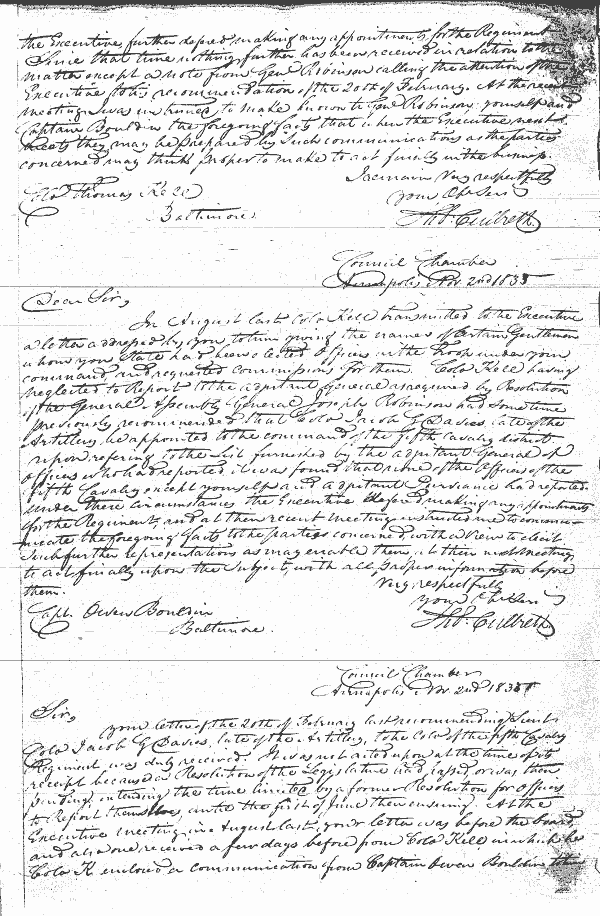 the Executive further defered making any appointments for the Regiment
Since that time nothing further has been received in relation to the
matter except a note from Genl Robinson calling the attention of the
Executive to his recommendation of the 20th of February. At the recent
meeting I was instructed to make known to Genl Robinson yourself and
Captain Bouldin the foregoing facts that when the Executive next
meets they may be prepared by such communications as the parties
concerned may think proper to make to act finally in the business.
I remain Very respectfully
your Obt Servt
Colo Thomas Kell
Baltimore
Thos. Culbreth
Council Chamber
Annapolis Nov. 2nd 1835
Dear Sir,
In August last Colo Kell transmitted to the Executive
a letter addressed by you to him giving the names of certain Gentlemen
whom you State had been elected Officers in the troop under your
command and requested commissions for them. Colo Kell having
neglected to Report to the adjutant General as required by Resolution
of the General Assembly General Joseph Robinson had sometime
previously recommended that Colo Jacob G Davies, late of the
Artillery, be appointed to the command of the fifth Cavalry district
upon refering to the list furnished by the adjutant General of
officers who had reported it was found that none of the Officers of the
fifth Cavalry except yourself and adjutant had reported.
Under these circumstances the Executive defered making any appointments
for the Regiment, and at their recent meeting instructed me to commu-
nicate the foregoing facts to the parties concerned, with a view to elicit
such further representations as may enable them, at their next meeting,
to act finally upon the Subject, with all proper information before
them.
Very respectfully
your Obt Servt
Capt. Owen Bouldin
Baltimore.
Thos. Culbreth
Council Chamber
Annapolis Nov. 2nd 1835
Sir,
your letter of the 20th of February last recommending Lieut
Colo Jacob G Davies, late of the Artillery, to be Colo of the fifth Cavalry
Regiment was duly received. It was not acted upon at the time of its
receipt because a Resolution of the Legislature had passed or was then
pending, extending the time limited by a former Resolution for officers
to Report themselves, until the first of June then ensuing. At the
Executive meeting in August last, your letter was before the board,
and also one received a few days before from Colo Kell in which he
Colo K. enclosed a communication from Captain Owen Bouldin to him